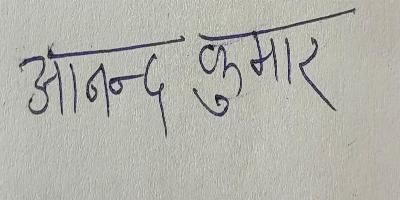 आनन्द कुमार